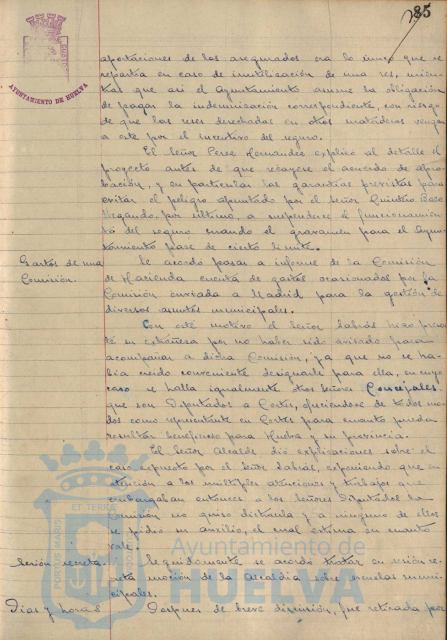 85
AYUNTAMIENTO DE HUELVA
aportaciones de los asegurados era lo único que se
repartía en caso de inutilización de una res, mien-
tras que así el Ayuntamiento asume la obligación
de pagar la indemnización correspondiente, con riesgo
de que las reses desechadas en otros mataderos vengan
a este por el incentivo del seguro.
El Señor Perez Hernandez explicó al detalle el
proyecto antes de que recayese el acuerdo de apro-
bación, y en particular las garantías previstas para
evitar el peligro apuntado por el Señor Quintero Baez
llegando, por último, a suspenderse el funcionamien-
to del seguro cuando el gravamen para el Ayun-
tamiento pase de cierto límite.
Gastos de una
Comisión.
Se acordó pasar a informe de la Comisión
de Hacienda cuenta de gastos ocasionados por la
Comisión enviada a Madrid para la gestión de
diversos asuntos municipales.
Con este motivo el Señor Sabrás hizo presen-
te su extrañeza por no haber sido avisado para
acompañar a dicha Comisión, ya que no se ha-
bía creido conveniente designarle para ella, en cuyo
caso se halla igualmente otros Señores Concejales
que son Diputados a Cortes, ofreciendose de todos mo-
dos como representante en Cortes para cuanto pueda
resultar beneficioso para Huelva y su provincia.
El Señor Alcalde dió explicaciones sobre el
caso expuesto por el Señor Sabrás, exponiendo que en
atención a los múltiples atenciones y trabajos que
embargaban entonces a los Señores Diputados la
Comisión no quiso distraerla y a ninguno de ellos
se pidió su auxilio, el cual estima en cuanto
vale.
Sesión secreta.
Seguidamente se acordó tratar en sesión se-
creta moción de la Alcaldía sobre escuelas muni-
cipales.
Días y horas
Despues de breve discusión, fue retirada por
PORTUS MARIS
ET TERRE
Ayuntamiento de
HUELVA